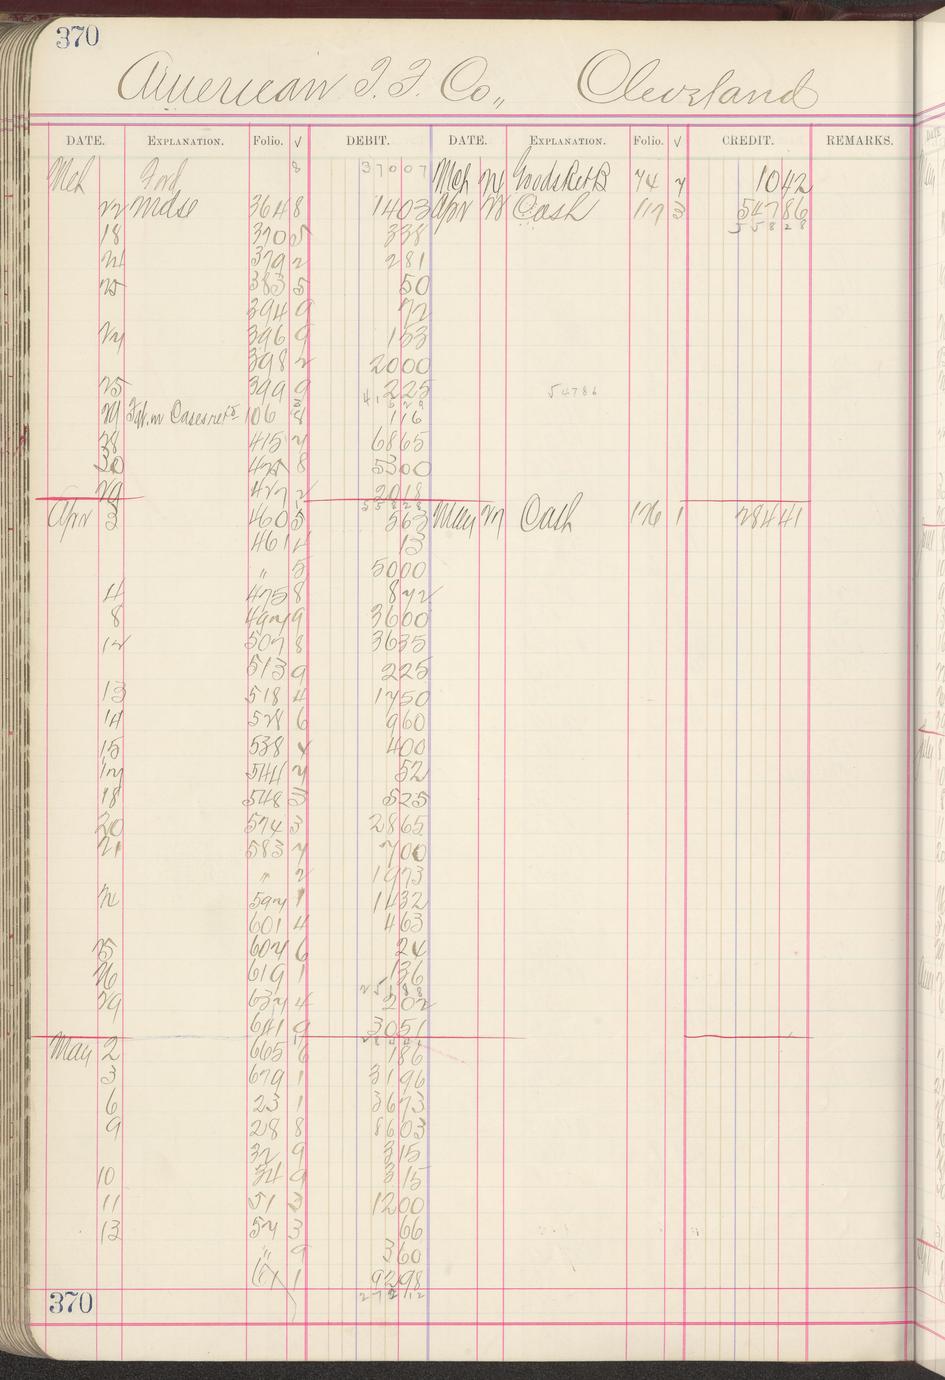 370
American T. T. Co., Cleveland
DATE. EXPLANATION. Folio. √ DEBIT. DATE. EXPLANATION. Folio. √ CREDIT. REMARKS.
Mch Ford 8 37007 Mch 24 Goods Ret B 74 7 1042
22 Mdse 364 8 1403 Apr 28 Cash 117 3 54786
55828
18 370 5 338
21 379 2 281
25 383 5 50
394 9 72
24 396 9 153
398 2 2000
25 399 9 225 54786
29 Cases ret 106 8 116
28 415 7 6865
30 425 8 5300
29 427 2 2018
55828
Apr 3 460 5 563 May 27 Cash 126 1 28441
461 4 13
" 5 5000
4 475 8 872
8 494 9 3600
12 507 8 3635
513 9 225
13 518 4 1750
14 528 6 960
15 538 4 400
17 544 7 52
18 548 3 525
20 574 3 2865
21 583 7 700
" 2 1973
22 597 1 1432
601 4 463
25 607 6 24
26 619 1 136
29 637 4 202
641 9 3051
May 2 665 6 186
3 679 1 3196
6 23 1 3673
9 28 8 8603
32 9 315
10 34 9 315
11 51 3 1200
13 57 3 66
" 9 360
67 1 9298
27212
370